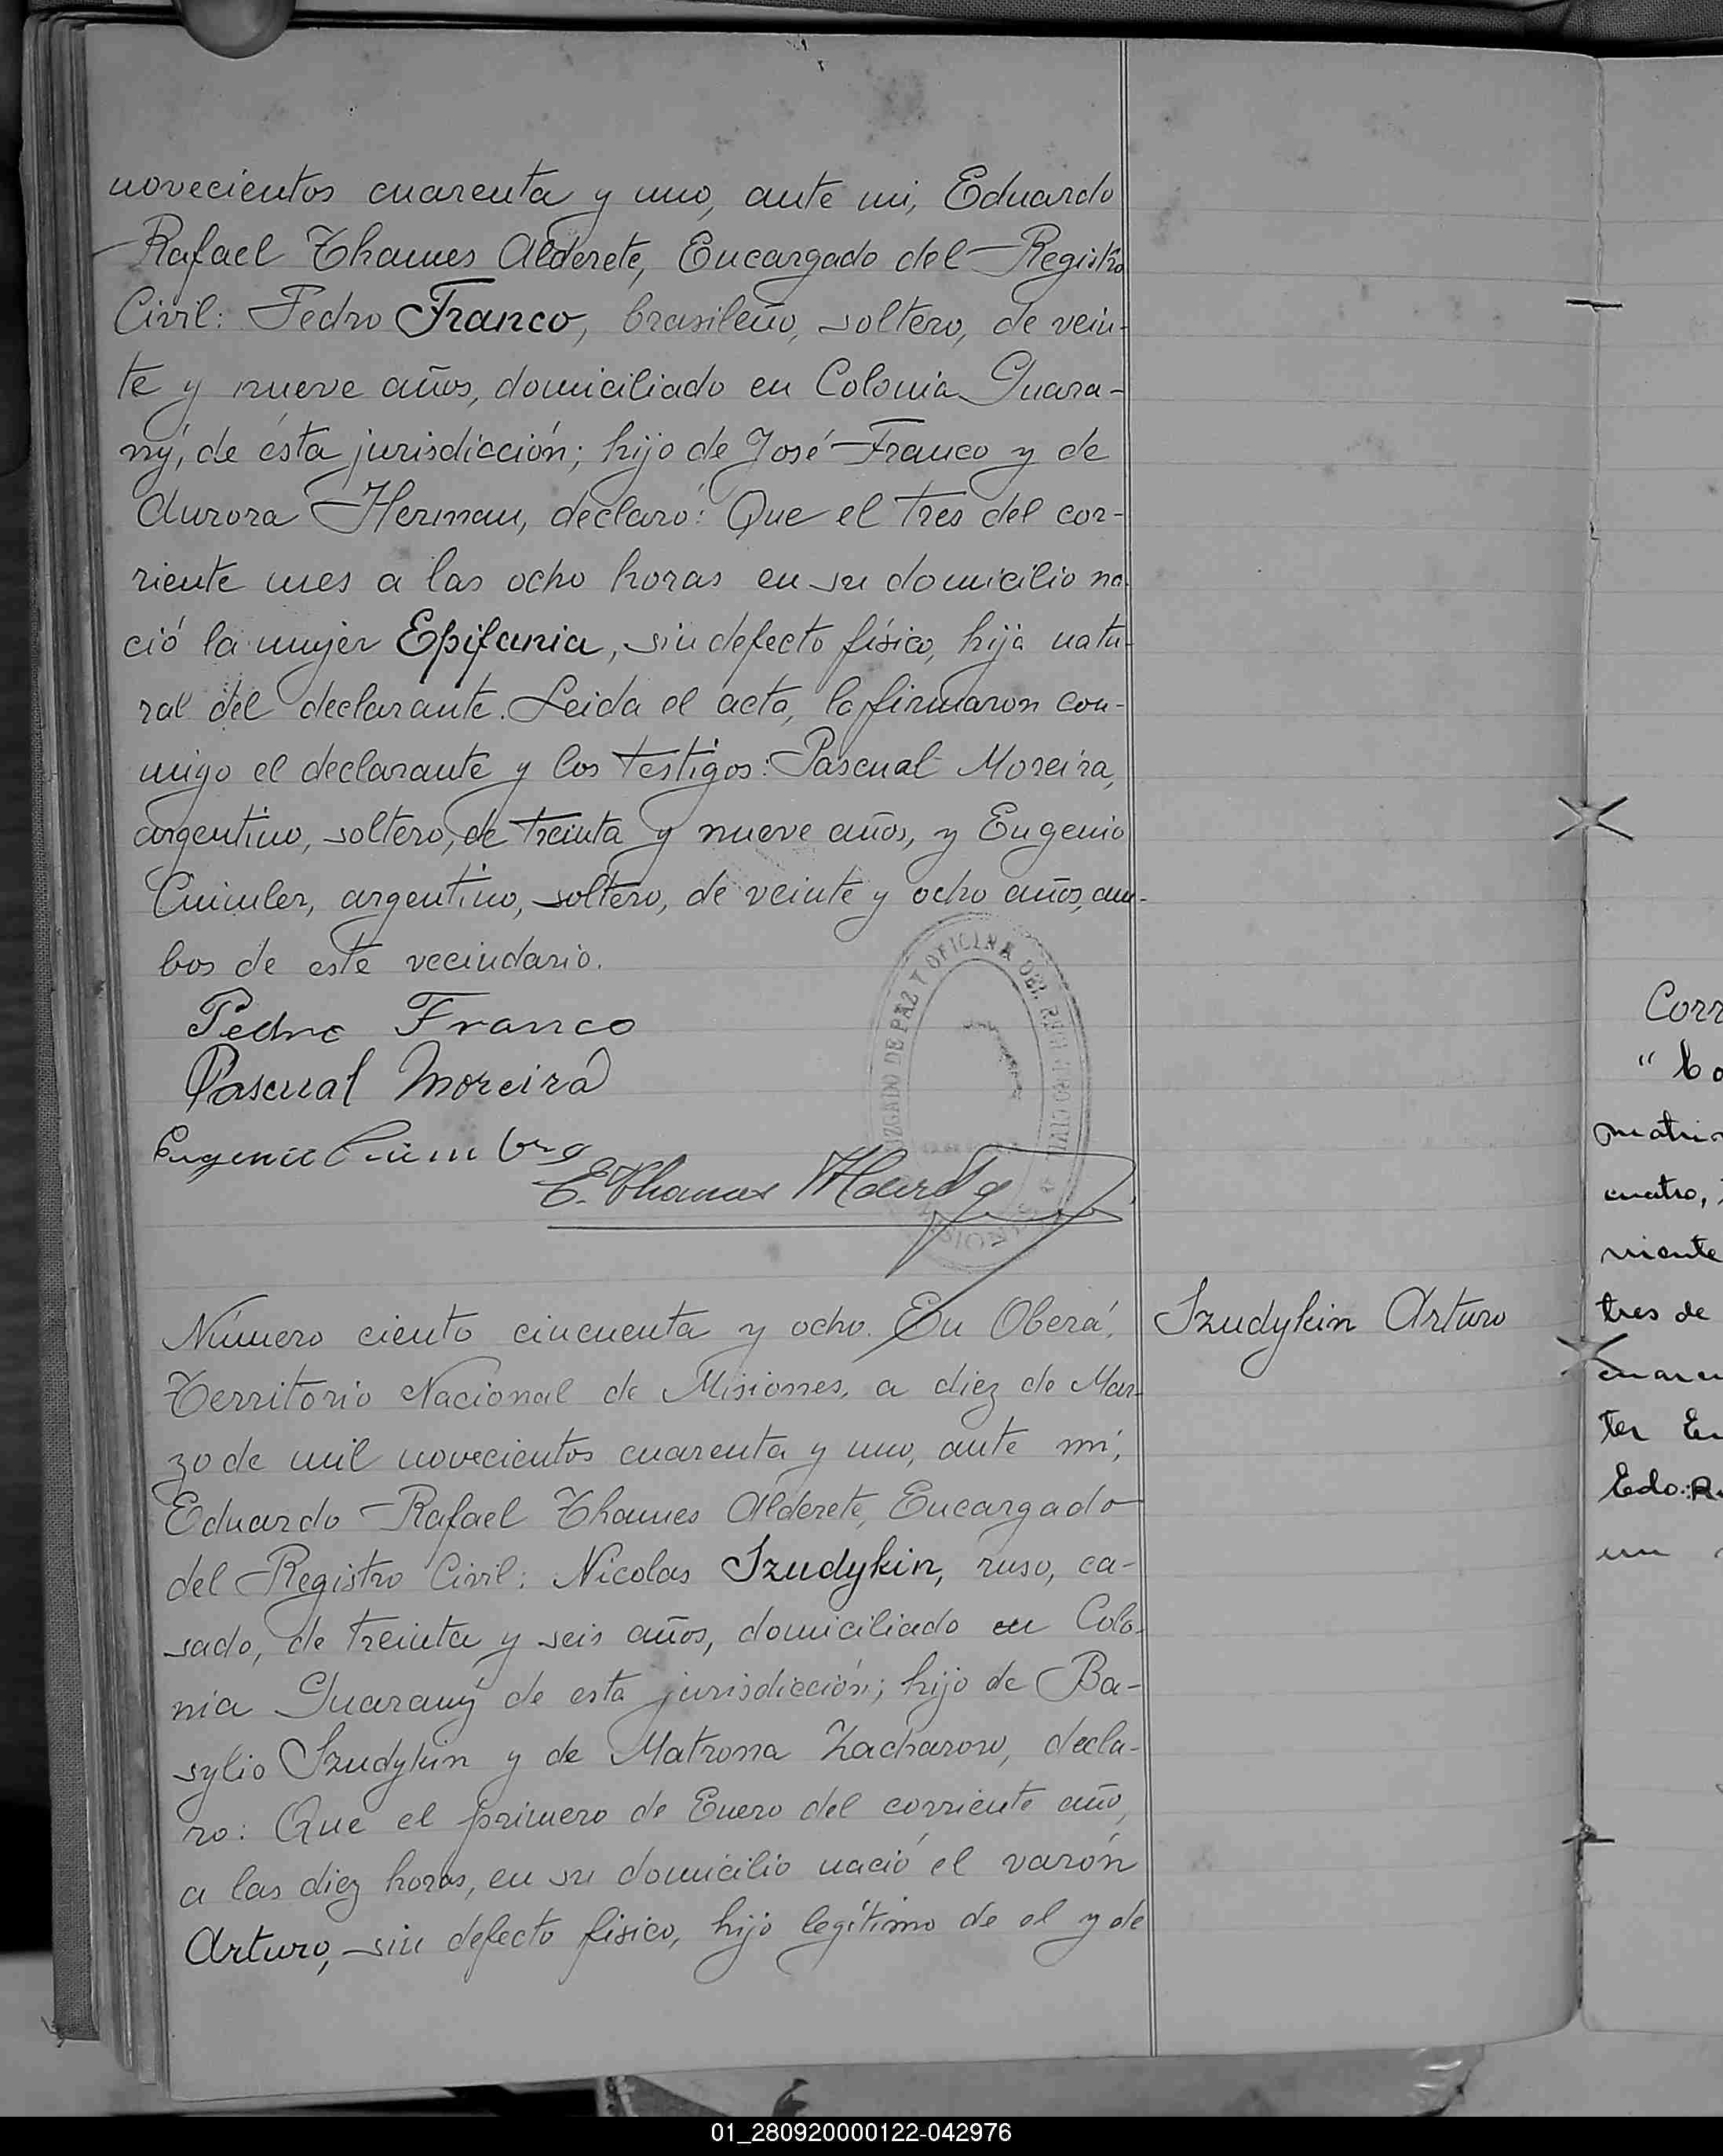 novecientos cuarenta y uno, ante mi, Eduardo
Rafael Thames Alderete, Encargado del Registro
Civil: Pedro Franco, brasileño, soltero, de vein-
te y nueve años, domiciliado en Colonia Guara-
ný, de ésta jurisdicción; hijo de José Franco y de
Aurora Herman, declaró: Que el tres del cor-
riente mes a las ocho horas en su domicilio na-
ció la mujer Epifania, sin defecto físico, hija natu-
ral del declarante. Leida el acta, la firmaron con-
migo el declarante y los testigos: Pascual Moreira,
argentino, soltero, de treinta y nueve años, y Eugenio
argentino, soltero, de veinte y ocho años, am-
bos de este vecindario.
Pedro Franco
Pascual Moreira
Eugenio
JUZGADO DE PAZ Y OFICINA DEL REGISTRO CIVIL
MISIONES
E. Thames Alderete
Número ciento cincuenta y ocho. En Oberá,
Territorio Nacional de Misiones, a diez de Mar-
zo de mil novecientos cuarenta y uno, ante mí,
Eduardo Rafael Thames Alderete, Encargado
del Registro Civil: Nicolas Szudykin, ruso, ca-
sado, de treinta y seis años, domiciliado en Colo-
nia Guaraný de esta jurisdicción; hijo de Ba-
sylio Szudykin y de Matrona Zacharow, decla-
ro: Que el primero de Enero del corriente año,
a las diez horas, en su domicilio nació el varón
Arturo, sin defecto fisico, hijo legítimo de el y de
Szudykin Arturo
Corr
matri
cuatro,
tres de
01_280920000122-042976